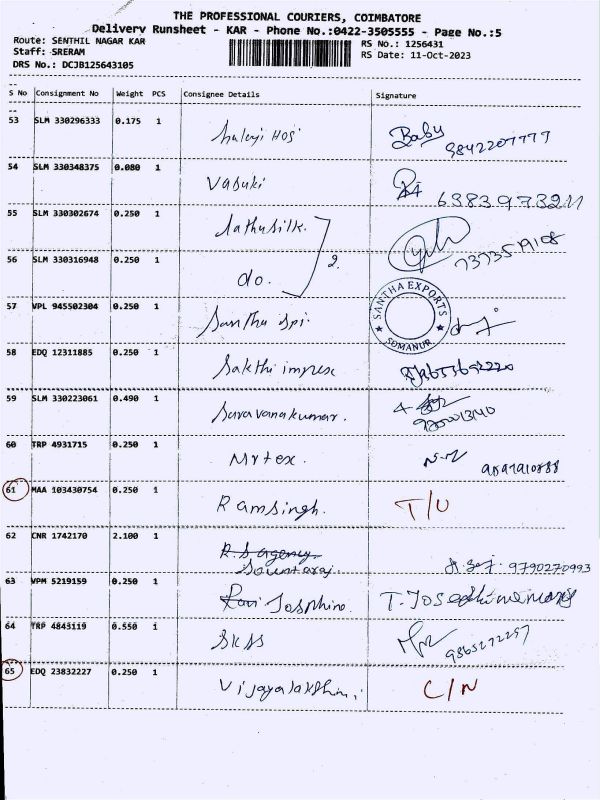 THE PROFESSIONAL COURIERS, COIMBATORE
Delivery Runsheet - KAR - Phone No.:0422-3505555 - Page No.:5
Route: SENTHIL NAGAR KAR RS No.: 1256431
Staff: SRERAM RS Date: 11-Oct-2023
DRS No.: DCJB125643105
S No Consignment No Weight PCS Consignee Details Signature
53 SLM 330296333 0.175 1 Hos Baby
9842207777
54 SLM 330348375 0.080 1 Vasuki 6383973211
55 SLM 330302674 0.250 1 Jathusilk.
2. 7373519108
56 SLM 330316948 0.250 1 do.
57 VPL 945502304 0.250 1 Santha Spi. SANTHA EXPORTS SOMANUR
58 EDQ 12311885 0.250 1 Sakthi impex
59 SLM 330223061 0.490 1 Saravanakumar.
60 TRP 4931715 0.250 1 Mrtex.
61 MAA 103430754 0.250 1 Ramsingh. T/U
62 CNR 1742170 2.100 1 R.S agency.
9790270993
63 VPM 5219159 0.250 1 Ravi Josphine.
64 TRP 4843119 0.550 1 SKSS 9865272257
65 EDQ 23832227 0.250 1 Vijayalakshmi. C/N